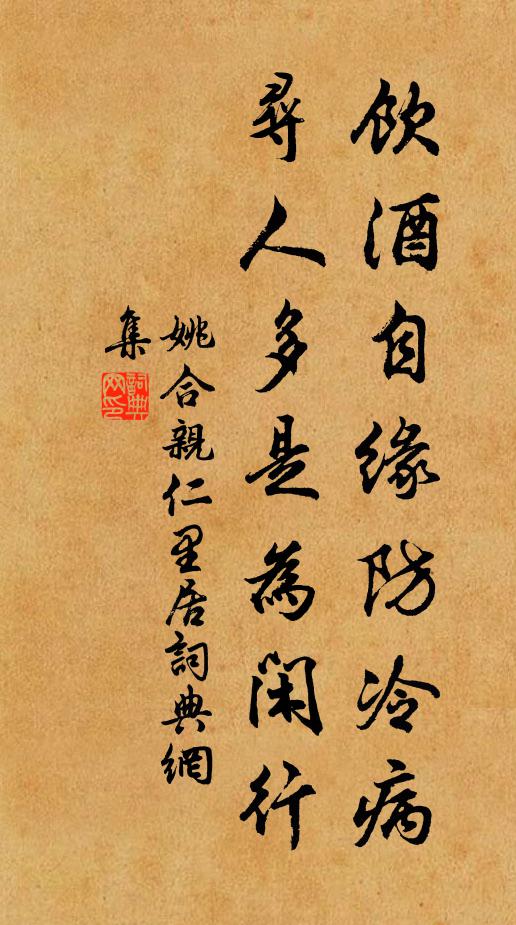 飲酒自緣防冷病
尋人多是為閑行
姚合親仁里居詞典網
集
詞典
網印